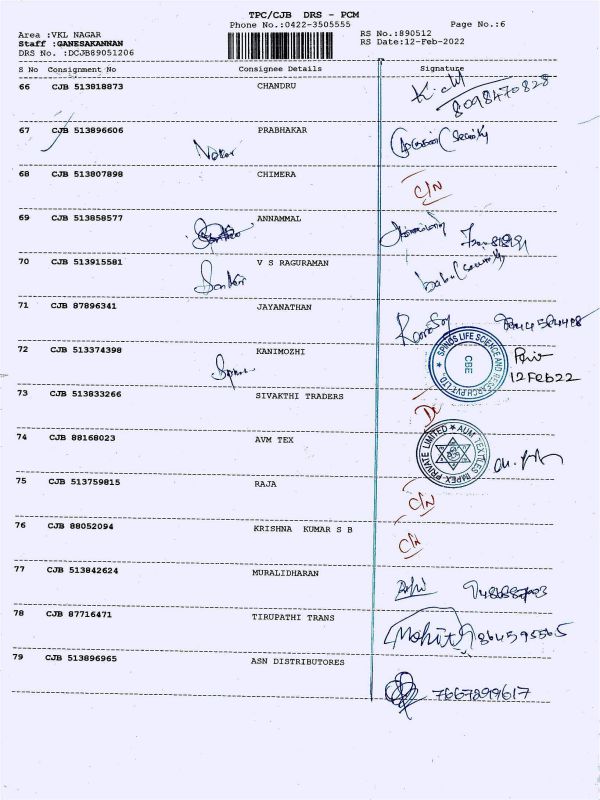 TPC/CJB DRS - PCM
Phone No.:0422-3505555 Page No.:6
Area :VKL NAGAR RS No.:890512
Staff :GANESAKANNAN RS Date:12-Feb-2022
DRS No. :DCJB89051206
S No Consignment No Consignee Details Signature
66 CJB 513818873 CHANDRU
8098470828
67 CJB 513896606 PRABHAKAR
68 CJB 513807898 CHIMERA
C/N
69 CJB 513858577 ANNAMMAL
70 CJB 513915581 V S RAGURAMAN
71 CJB 87896341 JAYANATHAN
72 CJB 513374398 KANIMOZHI
SPINOS LIFE SCIENCE AND RESEARCH PVT LTD. CBE
12 Feb 22
73 CJB 513833266 SIVAKTHI TRADERS
74 CJB 88168023 AVM TEX
AUM TEXTILES IMPEX PRIVATE LIMITED
75 CJB 513759815 RAJA
C/N
76 CJB 88052094 KRISHNA KUMAR S B
C/N
77 CJB 513842624 MURALIDHARAN
78 CJB 87716471 TIRUPATHI TRANS
Mohit
79 CJB 513896965 ASN DISTRIBUTORES
7667899617